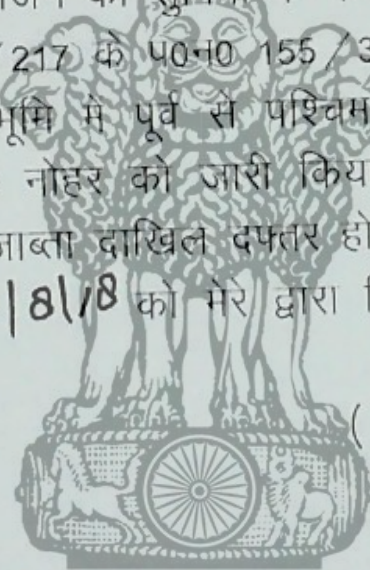 /217 के प0न0 155/3
भूमि में पूर्व से पश्चिम
नोहर को जारी किय
जाब्ता दाखिल दफ्तर हो
8/18 को मेरे द्वारा
(